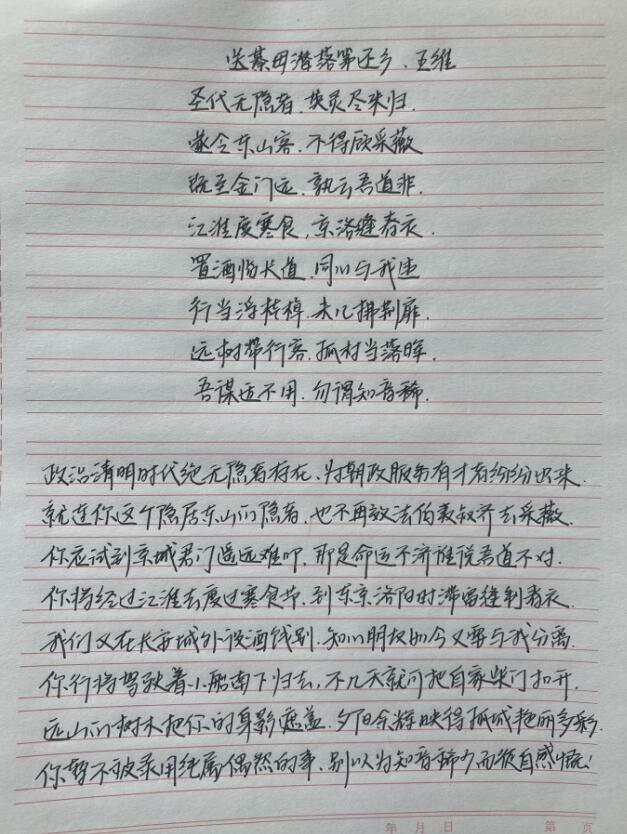 送綦毋潜落第还乡．王维
圣代无隐者．英灵尽来归．
遂令东山客．不得顾采薇
既至金门远．孰云吾道非．
江淮度寒食，京洛缝春衣．
置酒临长道．同心与我违
行当浮桂棹．未几拂荆扉．
远树带行客．孤村当落晖．
吾谋适不用．勿谓知音稀．
政治清明时代绝无隐者存在、为朝政服务有才者纷纷出来．
就连你这个隐居东山的隐者．也不再效法伯夷叔齐去采薇．
你应试到京城君门遥远难叩．那是命运不济谁说吾道不对．
你将经过江淮去度过寒食节．到东京洛阳时滞留缝制春衣．
我们又在长安城外设酒饯别．知心朋友如今又要与我分离
你行将驾驶着小船南下归去，不几天就可把自家柴门扣开．
远山的树木把你的身影遮盖．夕阳余辉映得孤城艳丽多彩．
你暂不被录用纯属偶然的事．别以为知音稀少而徒自感慨！
年 月 日 第 页